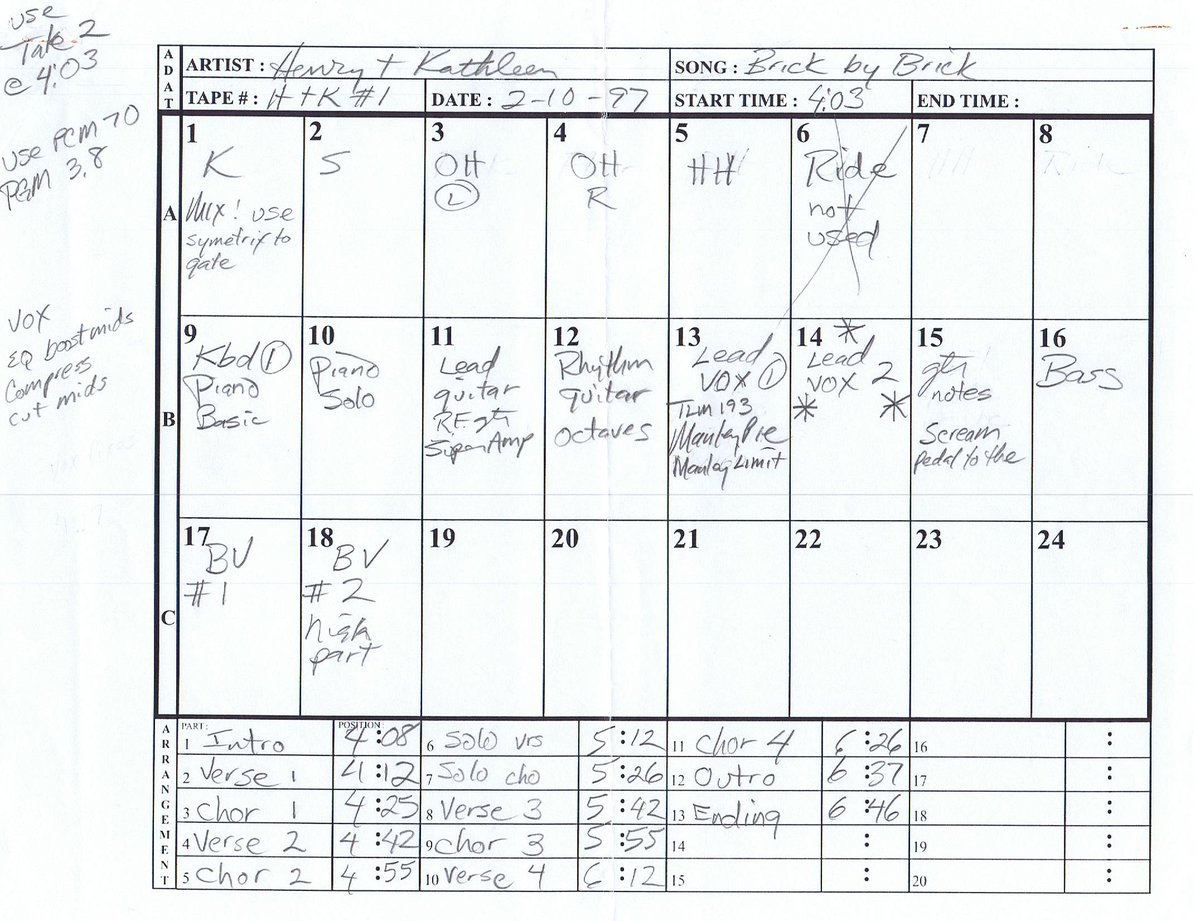 use
Take 2
@ 4:03
use PCM 70
PGM 3.8
VOX
EQ boost mids
Compress
cut mids
ADAT
ARTIST : Henry + Kathleen
SONG : Brick by Brick
TAPE # : H+K #1
DATE : 2-10-97
START TIME : 4:03
END TIME :
A
1
K
MIX! use
symetrix to
gate
2
S
3
OH
L
4
OH
R
5
HH
6
Ride
not
used
7
HH
8
Ride
B
9
Kbd 1
Piano
Basic
10
Piano
Solo
11
Lead
guitar
RE gtr
Super Amp
12
Rhythm
guitar
octaves
13
Lead
VOX 1
TLM 193
Manley Pre
Manley Limit
14 *
Lead
VOX 2
* *
15
gtr
notes
Scream
pedal to the
16
Bass
C
17
BV
#1
18
BV
# 2
high
part
19
20
21
22
23
24
ARRANGEMENT
PART: POSITION:
1 Intro 4:08
2 Verse 1 4:12
3 Chor 1 4:25
4 Verse 2 4:42
5 Chor 2 4:55
6 Solo vrs 5:12
7 Solo cho 5:26
8 Verse 3 5:42
9 Chor 3 5:55
10 Verse 4 6:12
11 Chor 4 6:26
12 Outro 6:37
13 Ending 6:46
14 :
15 :
16 :
17 :
18 :
19 :
20 :